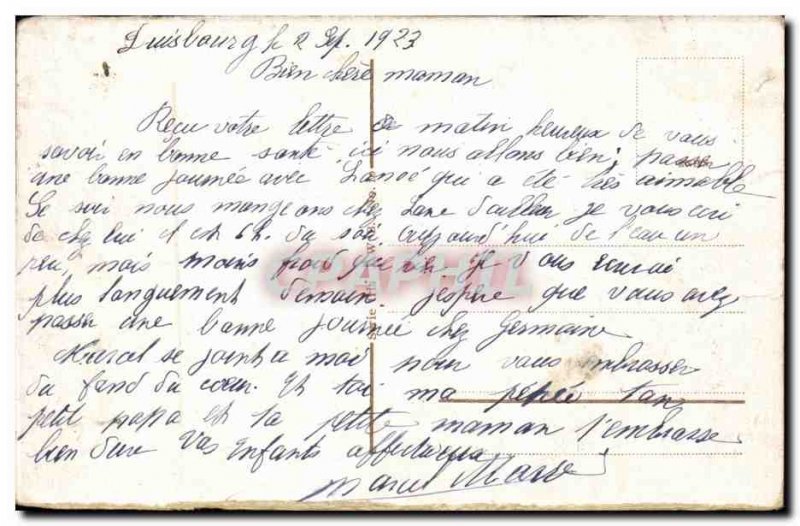 Duisbourg le 2 Sep. 1923
Bien chère maman
Reçu votre lettre ce matin heureux de vous
savoir en bonne santé ici nous allons bien; passé
une bonne journée avec qui a été très aimable
Ce soir nous mangeons chez je vous cri
de chez lui il est 6h. du soir. aujourd'hui de l'eau un
peu, mais moins je vous
plus longuement demain. j'espère que vous avez
passer une bonne journée chez Germaine
Marcel se joint a moi pour vous embrasser
du fond du cœur. Et toi ma pepée ton
petit papa et ta petite maman t'embrasse
bien dure Vos Enfants affectueux
Marcel
CPAPHIL
Serie